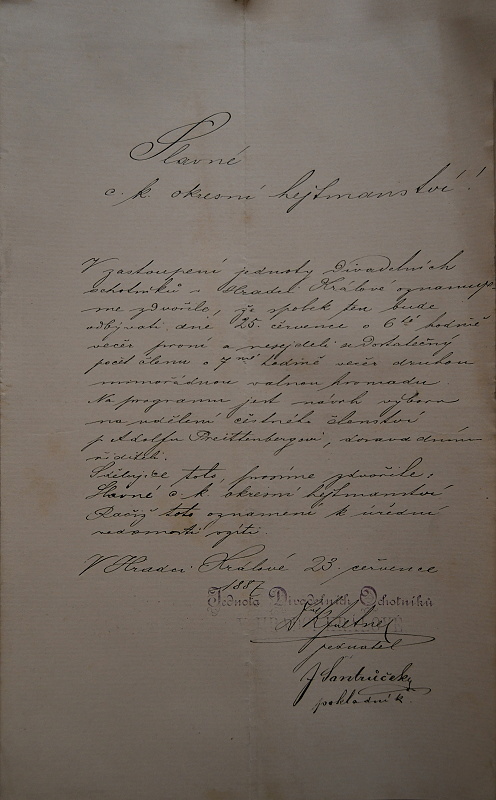 Slavné
c. k. okresní hejtmanství!
V zastoupení jednoty Divadelních
ochotníků v Hradci Králové oznamuje-
me zdvořile, že spolek ten bude
odbývati dne 25. července o 6té hodině
večer první a nesejdeli se dostatečný
počet členu o 7mé hodině večer druhou
mimořádnou valnou hromadu.
Na programu jest návrh výboru
na udělení čestného členství
p. Adolfu
řediteli.
Sdělujíce toto, prosíme zdvořile:
Slavné c. k. okresní hejtmanství
Račiž toto oznámení k úřední
vědomosti vzíti.
V Hradci Králové 23. července
1887
Jednota Divadelních Ochotníků
předsedatel
J Šantrůček
pokladník.